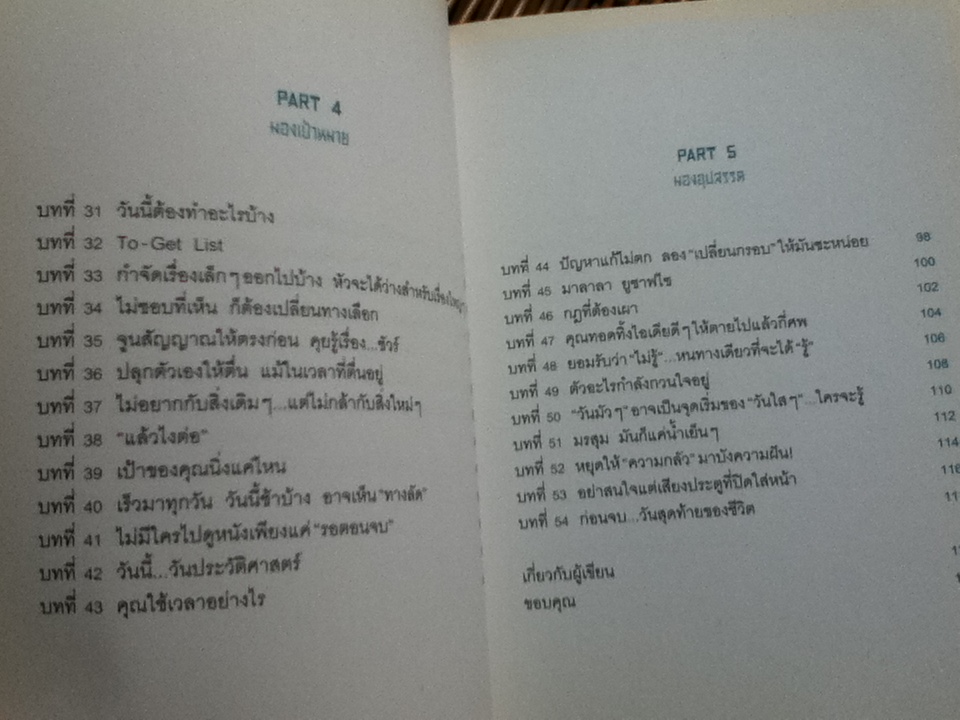 PART 4
มองเป้าหมาย
บทที่ 31 วันนี้ต้องทำอะไรบ้าง
บทที่ 32 To-Get List
บทที่ 33 กำจัดเรื่องเล็กๆ ออกไปบ้าง หัวจะได้ว่างสำหรับเรื่องใหญ่ๆ
บทที่ 34 ไม่ชอบที่เห็น ก็ต้องเปลี่ยนทางเลือก
บทที่ 35 จูนสัญญาณให้ตรงก่อน คุยรู้เรื่อง...ชัวร์
บทที่ 36 ปลุกตัวเองให้ตื่น แม้ในเวลาที่ตื่นอยู่
บทที่ 37 ไม่อยากกับสิ่งเดิมๆ...แต่ไม่กล้ากับสิ่งใหม่ๆ
บทที่ 38 "แล้วไงต่อ"
บทที่ 39 เป้าของคุณนิ่งแค่ไหน
บทที่ 40 เร็วมาทุกวัน วันนี้ช้าบ้าง อาจเห็น "ทางลัด"
บทที่ 41 ไม่มีใครไปดูหนังเพียงแค่ "รอตอนจบ"
บทที่ 42 วันนี้...วันประวัติศาสตร์
บทที่ 43 คุณใช้เวลาอย่างไร
PART 5
มองอุปสรรค
บทที่ 44 ปัญหาแก้ไม่ตก ลอง "เปลี่ยนกรอบ" ให้มันซะหน่อย 98
บทที่ 45 มาลาลา ยูซาฟไซ 100
บทที่ 46 กฎที่ต้องเผา 102
บทที่ 47 คุณทอดทิ้งไอเดียดีๆ ให้ตายไปแล้วกี่ศพ 104
บทที่ 48 ยอมรับว่า "ไม่รู้"...หนทางเดียวที่จะได้ "รู้" 106
บทที่ 49 ตัวอะไรกำลังกวนใจอยู่ 108
บทที่ 50 "วันมัวๆ" อาจเป็นจุดเริ่มของ "วันใสๆ"...ใครจะรู้ 110
บทที่ 51 มรสุม มันก็แค่น้ำเย็นๆ 112
บทที่ 52 หยุดให้ "ความกลัว" มาบังความฝัน! 114
บทที่ 53 อย่าสนใจแต่เสียงประตูที่ปิดใส่หน้า 116
บทที่ 54 ก่อนจบ...วันสุดท้ายของชีวิต
เกี่ยวกับผู้เขียน
ขอบคุณ